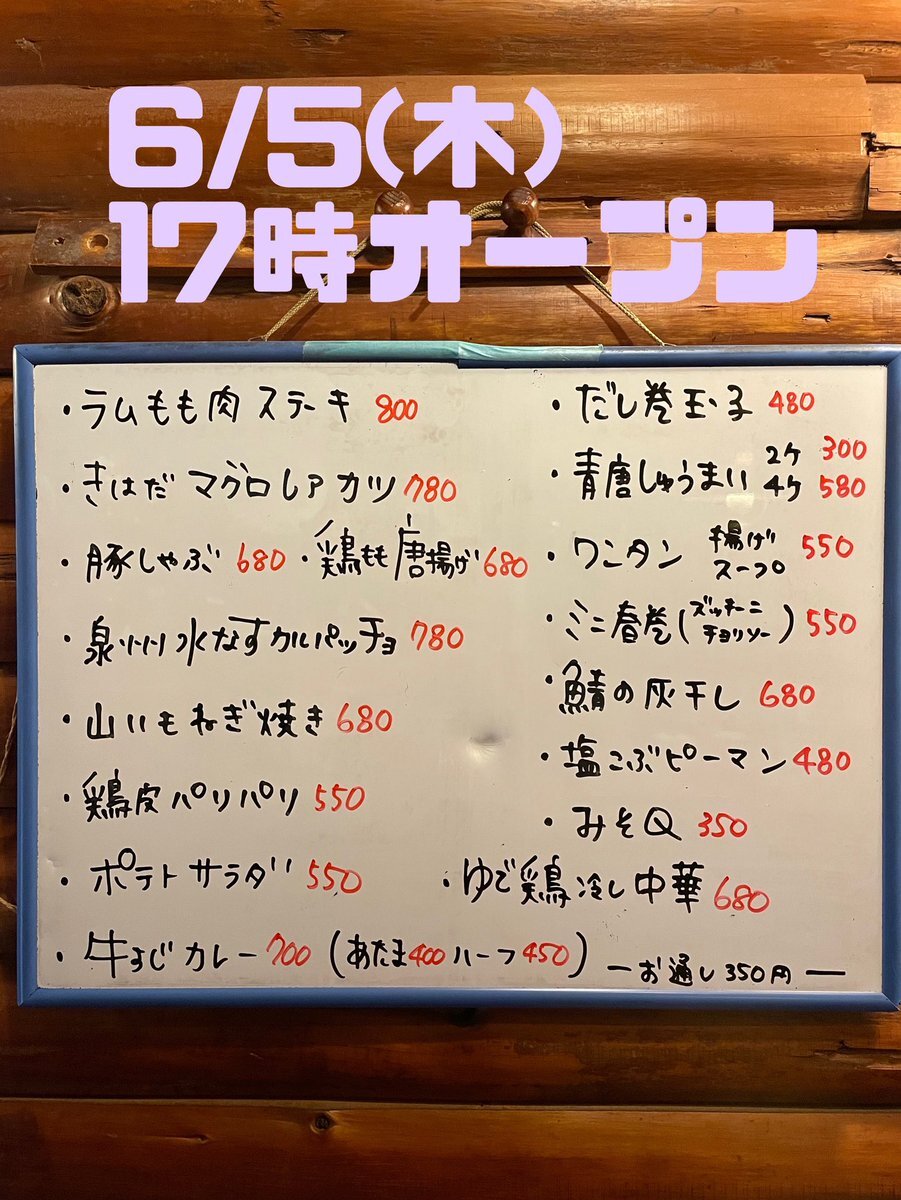 6/5(木)
17時オープン
・ラムもも肉ステーキ 800
・きはだマグロレアカツ 780
・豚しゃぶ 680 ・鶏もも唐揚げ 680
・泉州水なすカルパッチョ 780
・山いもねぎ焼き 680
・鶏皮パリパリ 550
・ポテトサラダ 550
・牛すじカレー 700 (あたま400 ハーフ450)
・だし巻玉子 480
・青唐しゅうまい 2ケ 300
4ケ 580
・ワンタン 揚げ スープ 550
・ミニ春巻(ズッキーニ チョリソー) 550
・鯖の灰干し 680
・塩こぶピーマン 480
・みそQ 350
・ゆで鶏冷し中華 680
ーお通し350円ー